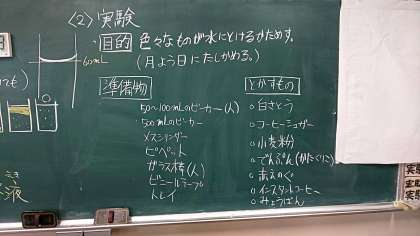 〈2〉実験
目的 色々なものが水にとけるかためす。
(月よう日にたしかめる。)
60mL
準備物
50〜100mLのビーカー(人)
500mLのビーカー
メスシリンダー
ピペット
ガラス棒(人)
ビニールテープ
トレイ
とかすもの
○白さとう
○コーヒーシュガー
○小麦粉
○でんぷん(かたくりこ)
○あえのぐ
○インスタントコーヒー
○みょうばん
ても)
液